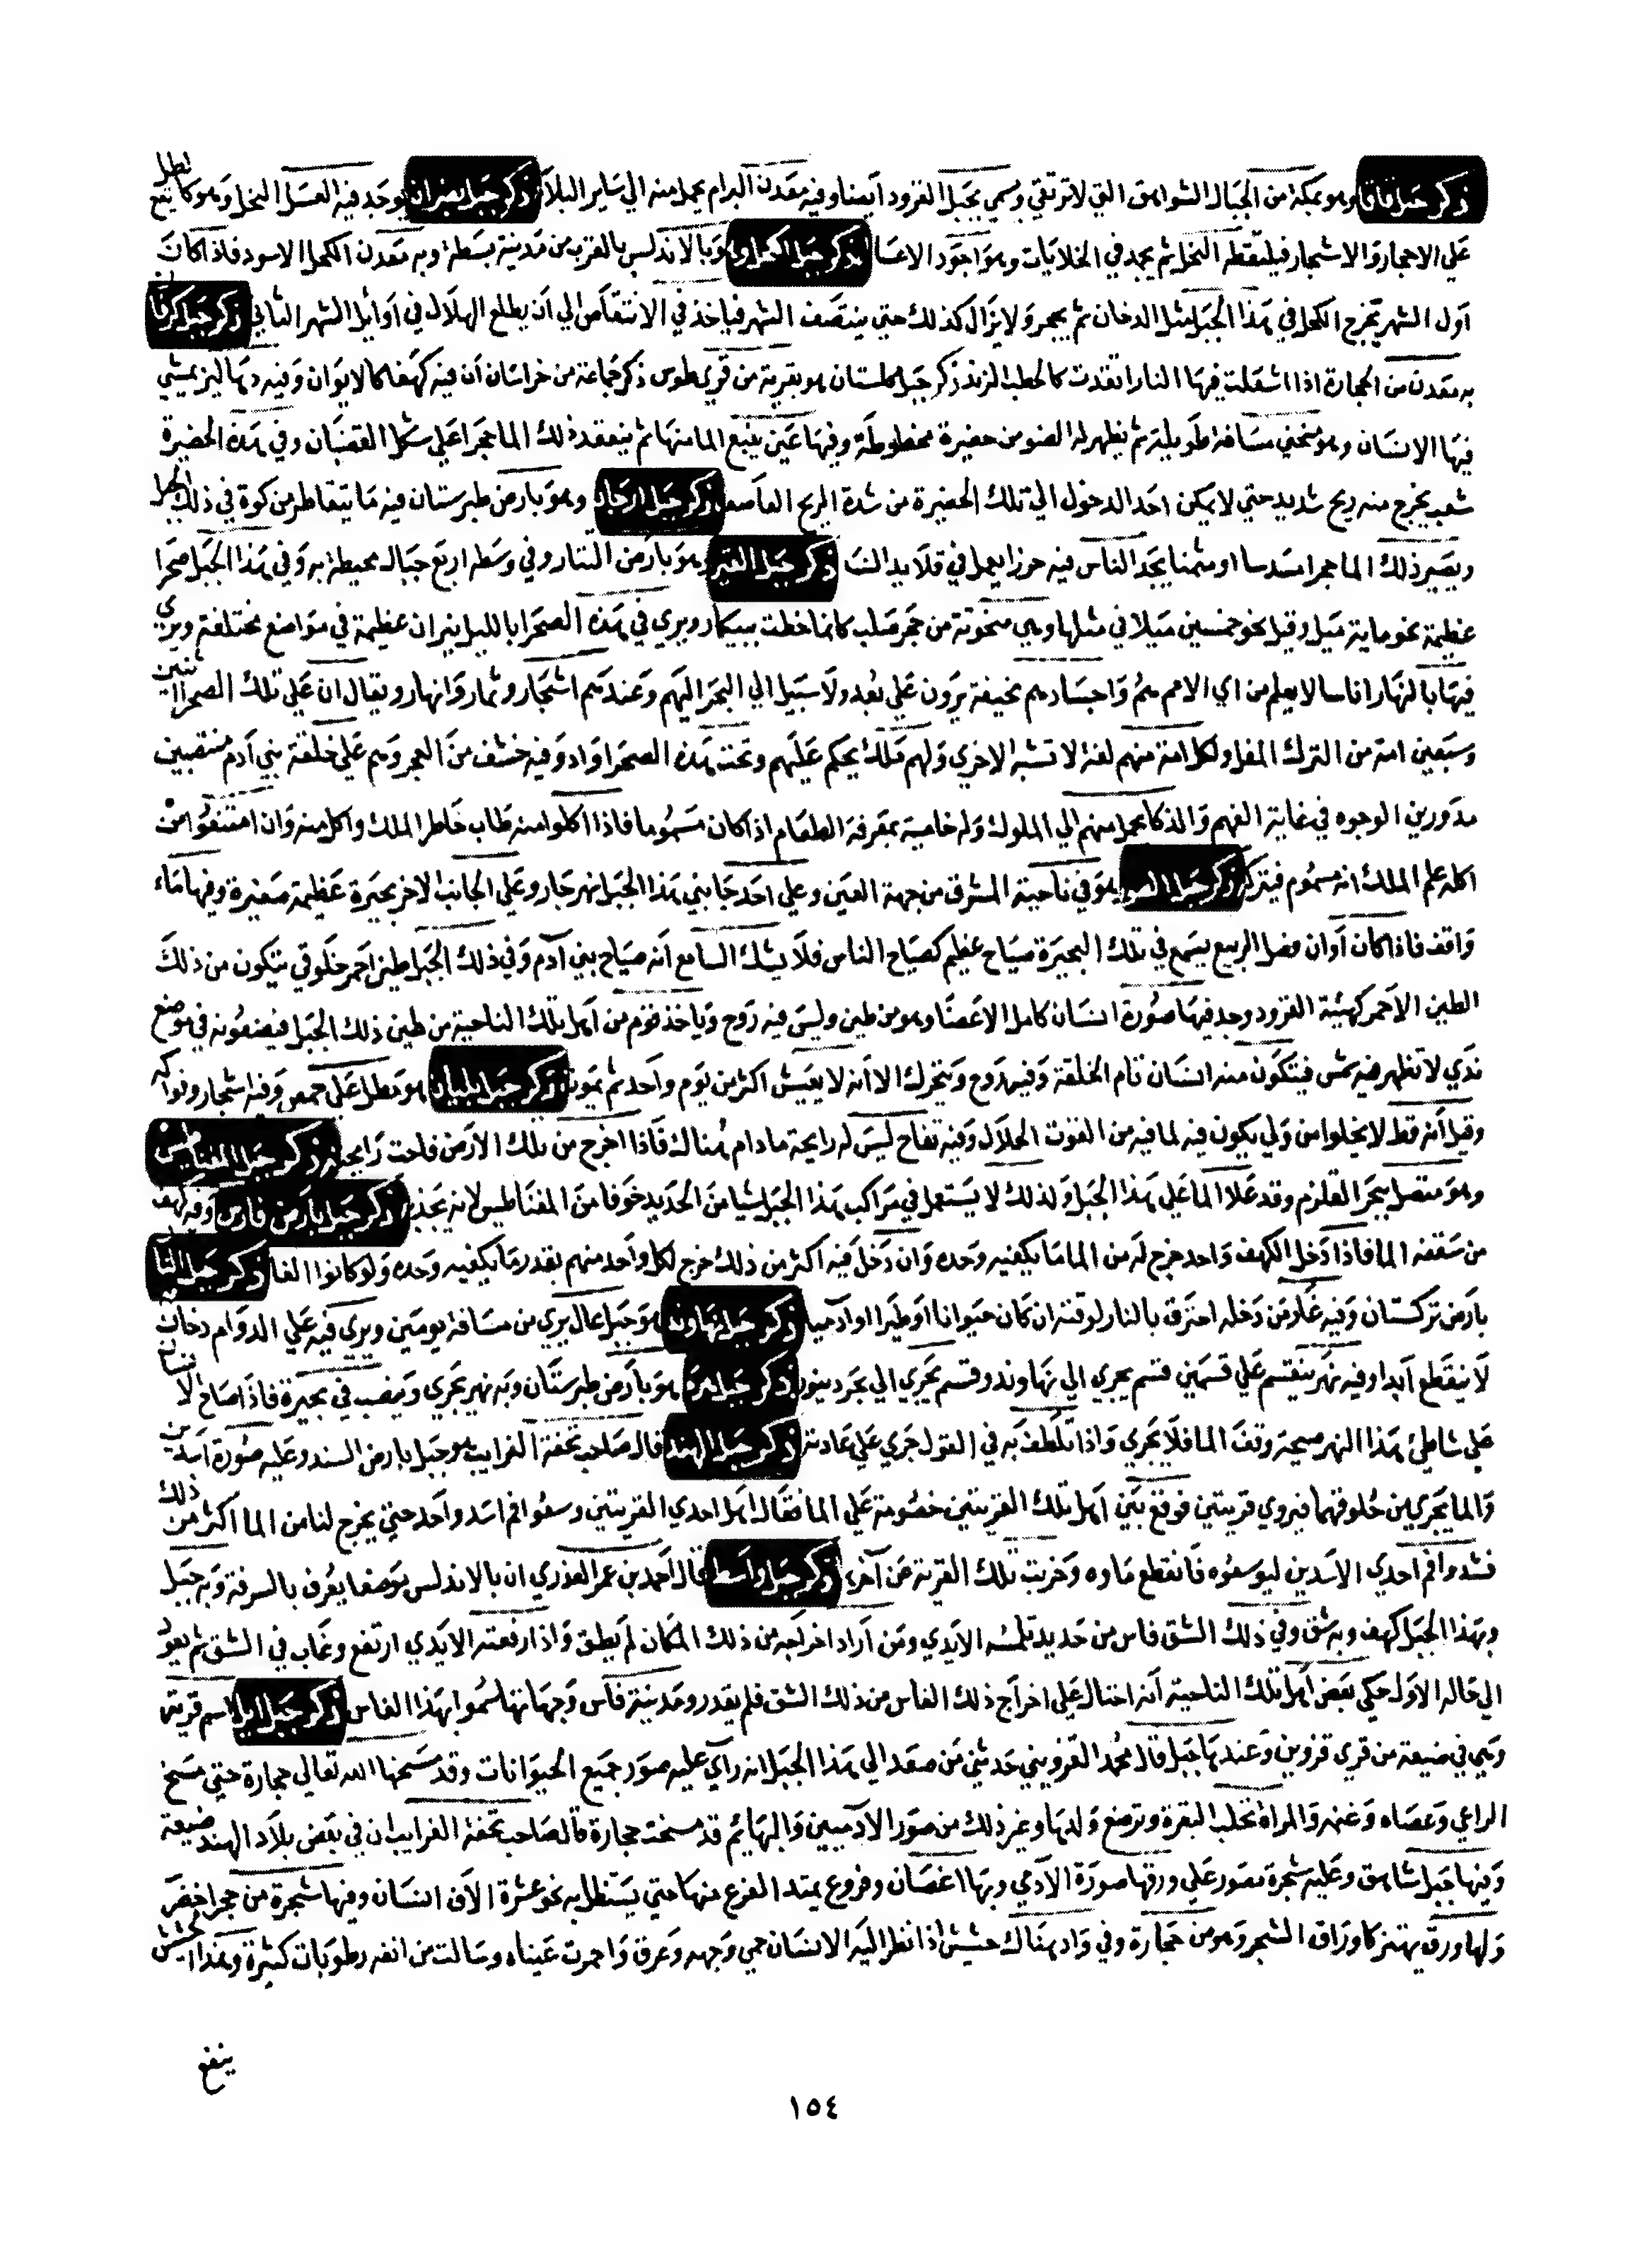 ذكر جبل قاقا وهو بمكة من الجبال الشواهق التي لا ترتقي ويسمي بجبل القرود ايضا وفيه معدن البرام يحمل منه الي ساير البلاد ذكر جبل نيران يوجد فيه العسل النحل وهو كالطل يقع
علي الاحجار والاشجار فيلتقطه النحل ثم يمجه في الخلايات وهو اجود الاعسال ذكر جبل الكحل وهو بالاندلس بالقرب من مدينة بسطة وبه معدن الكحل الاسود فاذا كان
اول الشهر يخرج الكحل في هذا الجبل مثل الدخان ثم يجمر ولا يزال كذلك حتي ينتصف الشهر فياخذ في الانتقاص الي ان يطلع الهلال في اوايل الشهر الثاني ذكر جبل كرفا
به معدن من الحجارة اذا اشعلت فيها النار اتقدت كالحطب الزند ذكر جبل كلستان هو بقرية من قري طوس ذكر جماعة من خراسان ان فيه كهفا كالايوان وفيه دهاليز يمشي
فيها الانسان وهو منحني مسافة طويلة ثم يظهر له الضو من حضيرة مخطوطة وفيها عين ينبع الما منها ثم ينعقد ذلك الما حجرا علي شكل القضبان وفي هذه الحضيرة
شعب يخرج منه ريح شديد حتي لا يمكن احد الدخول الي تلك الحضيرة من شدة الريح العاصف ذكر جبل ارجان وهو بارض طبرستان فيه ما يتقاطر من كوة في ذلك الجبل
ويصير ذلك الما حجرا مسدسا او مثمنا يجد الناس فيه حرزا يعمل في قلايد النسا ذكر جبل القمر وهو بارض التتار وفي وسطه اربع جبال محيطة به وفي هذا الجبل صحرا
عظيمة نحو ماية ميل وقيل نحو خمسين ميلا في مثلها وهي منحوتة من حجر صلب كانما خطت ببيكار ويري في هذه الصحرا بالليل نيران عظيمة في مواضع مختلفة ويري
فيها بالنهار اناسا لا يعلم من اي الامم هم واجسادهم نحيفة يرون علي بعد ولا سبيل الي البحر اليهم وعندهم اشجار وثمار وانهار ويقال ان علي تلك الصحرا اثنين
وسبعين امة من الترك المغل ولكل امة منهم لغة لا تشبه الاخري ولهم ملك يحكم عليهم وتحت هذه الصحرا واد وفيه خشف من العجر وهم علي خلقة بني ادم منتصبين
مدورين الوجوه في غاية الفهم والذكا يحمل منهم الي الملوك وله خاصية بمعرفة الطعام اذا كان مسموما فاذا اكلوا منه طاب خاطر الملك واكل منه وان امتنعوا من
اكله علم الملك انه مسموم فيتركه ذكر جبل الصو هو في ناحية المشرق من جهة العين وعلي احد جانبي هذا الجبل نهر جار وعلي الجانب الاخر بحيرة عظيمة صغيرة وفيها ماء
واقف فاذا كان اوان فصل الربيع يسمع في تلك البحيرة صياح عظيم كصياح الناس فلا يشك السامع انه صياح بني آدم وفي ذلك الجبل طين احمر خلوقي يتكون من ذلك
الطين الاحمر كهيئة القرود وجد فيها صورة انسان كامل الاعضا وهو من طين وليس فيه روح وياخذ قوم من اهل تلك الناحية من طين ذلك الجبل فيضعونه في موضع
ندي لا تظهر فيه شمس فيتكون منه انسان تام الخلقة وفيه روح ويتحرك الا انه لا يعيش اكثر من يوم واحد ثم يموت ذكر جبل لبنان هو مطل علي حمص وفيه اشجار وفواكه
وقيل انه قط لا يخلوا من ولي يكون فيه لما فيه من القوت الحلال وفيه تفاح ليس له رايحة ما دام هناك فاذا اخرج من تلك الارض فاحت رايحته ذكر جبل المغناطيس
وهو متصل ببحر القلزم وقد علا الما علي هذا الجبل ولذلك لا يستعمل في مراكب هذا الجبل شيا من الحديد خوفا من المغناطيس لانه يجذبه ذكر جبل بارض فارس وفيه كهف
من سقفه الما فاذا دخل الكهف واحد خرج له من الما ما يكفيه وحده وان دخل فيه اكثر من ذلك خرج لكل واحد منهم بقدر ما يكفيه وحده ولو كانوا الفا ذكر جبل النار
بارض تركستان وفيه غار من دخله احترق بالنار لوقته ان كان حيوانا او طيرا او ادميا ذكر جبل نهاوند هو جبل عال يري من مسافة يومين ويري فيه علي الدوام دخان
لا ينقطع ابدا وفيه نهر ينقسم علي قسمين قسم يجري الي نهاوند وقسم يجري الي بحر دينور ذكر جبل هرمز هو بارض طبرستان وبه نهر يجري ويصب في بحيرة فاذا صاح الانسان
علي شاطئ هذا النهر صيحة وقف الما فلا يجري واذا تلطف به في القول جري علي عادته ذكر جبل الهند قال صاحب تحفة الغرايب هو جبل بارض السند وعليه صورة اسدين
والما يجري من حلوقهما فيروي قريتين فوقع بين اهل تلك القريتين خصومة علي الما فقال اهل احدي القريتين وسعوا فم اسد واحد حتي يخرج لنا من الما اكثر من ذلك
فشدوا فم احدي الاسدين ليوسعوه فانقطع ماوه وخربت تلك القرية عن آخرها ذكر جبل واسط قال احمد بن عمر العذري ان بالاندلس موضعا يعرف بالسرقة وبه جبل
وبهذا الجبل كهف وبه شق وفي ذلك الشق فاس من حديد تلمسه الايدي ومن اراد اخراجه من ذلك المكان لم يطق واذا رفعته الايدي ارتفع وغاب في الشق ثم يعود
الي حاله الاول حكي بعض اهل تلك الناحية انه احتال علي اخراج ذلك الفاس من ذلك الشق فلم يقدر ومدينة فاس وجهاتها سموا بهذا الفاس ذكر جبل اليل اسم قرية
وهي في ضيعة من قري قزوين وعندها جبل قال محمد القزويني حدثني من صعد الي هذا الجبل انه راي عليه صور جميع الحيوانات وقد مسخها الله تعالي حجارة حتي مسخ
الراعي وعصاه وغنمه والمراة تحلب البقرة وترضع ولدها وغير ذلك من صور الادميين والبهايم قد مسخت حجارة قال صاحب تحفة الغرايب ان في بعض بلاد الهند ضيعة
وفيها جبل شاهق وعليه شجرة مصور علي ورقها صورة الآدمي وبها اغصان وفروع يمتد الفرع منها حتي يستظل به نحو عشرة الاف انسان وفيها شجرة من حجر اخضر
ولها ورق يهتز كاوراق الشجر وهو من حجارة وفي واد هناك حشيش اذا نظر اليه الانسان حمي وجهه وعرق واحمرت عيناه وسالت من انفه رطوبات كثيرة وهذا الحشيش
ينفع
١٥٤